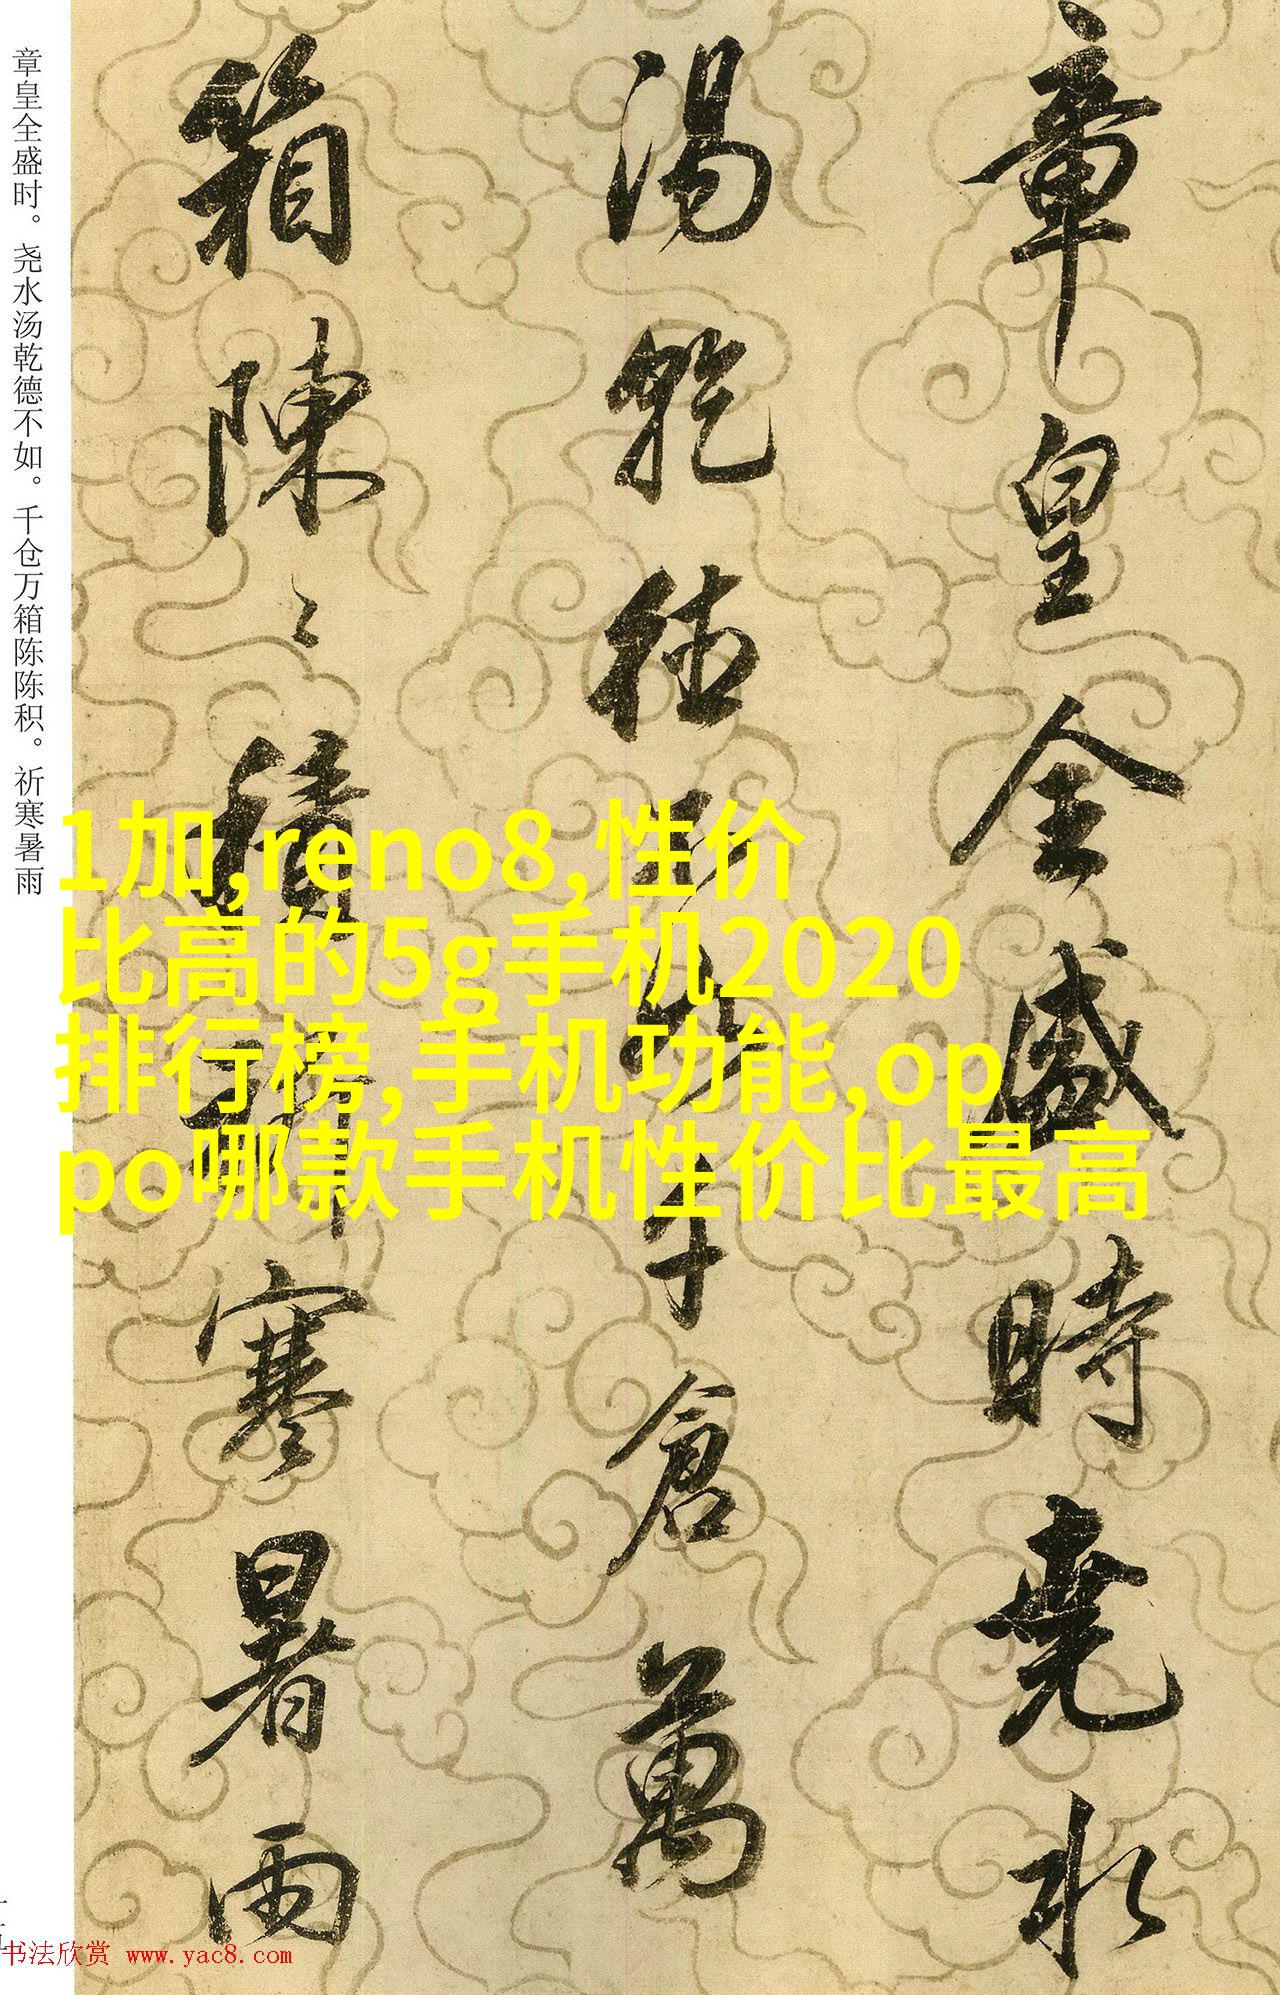 章皇全盛時堯水
湯乾德不如千倉萬
箱陳〻積祈寒暑雨
章皇全盛时。尧水汤乾德不如。千仓万箱陈陈积。祈寒暑雨
1加,reno8,性价
比高的5g手机2020
排行榜,手机功能,op
po哪款手机性价比最高
书法欣赏 www.yac8.com